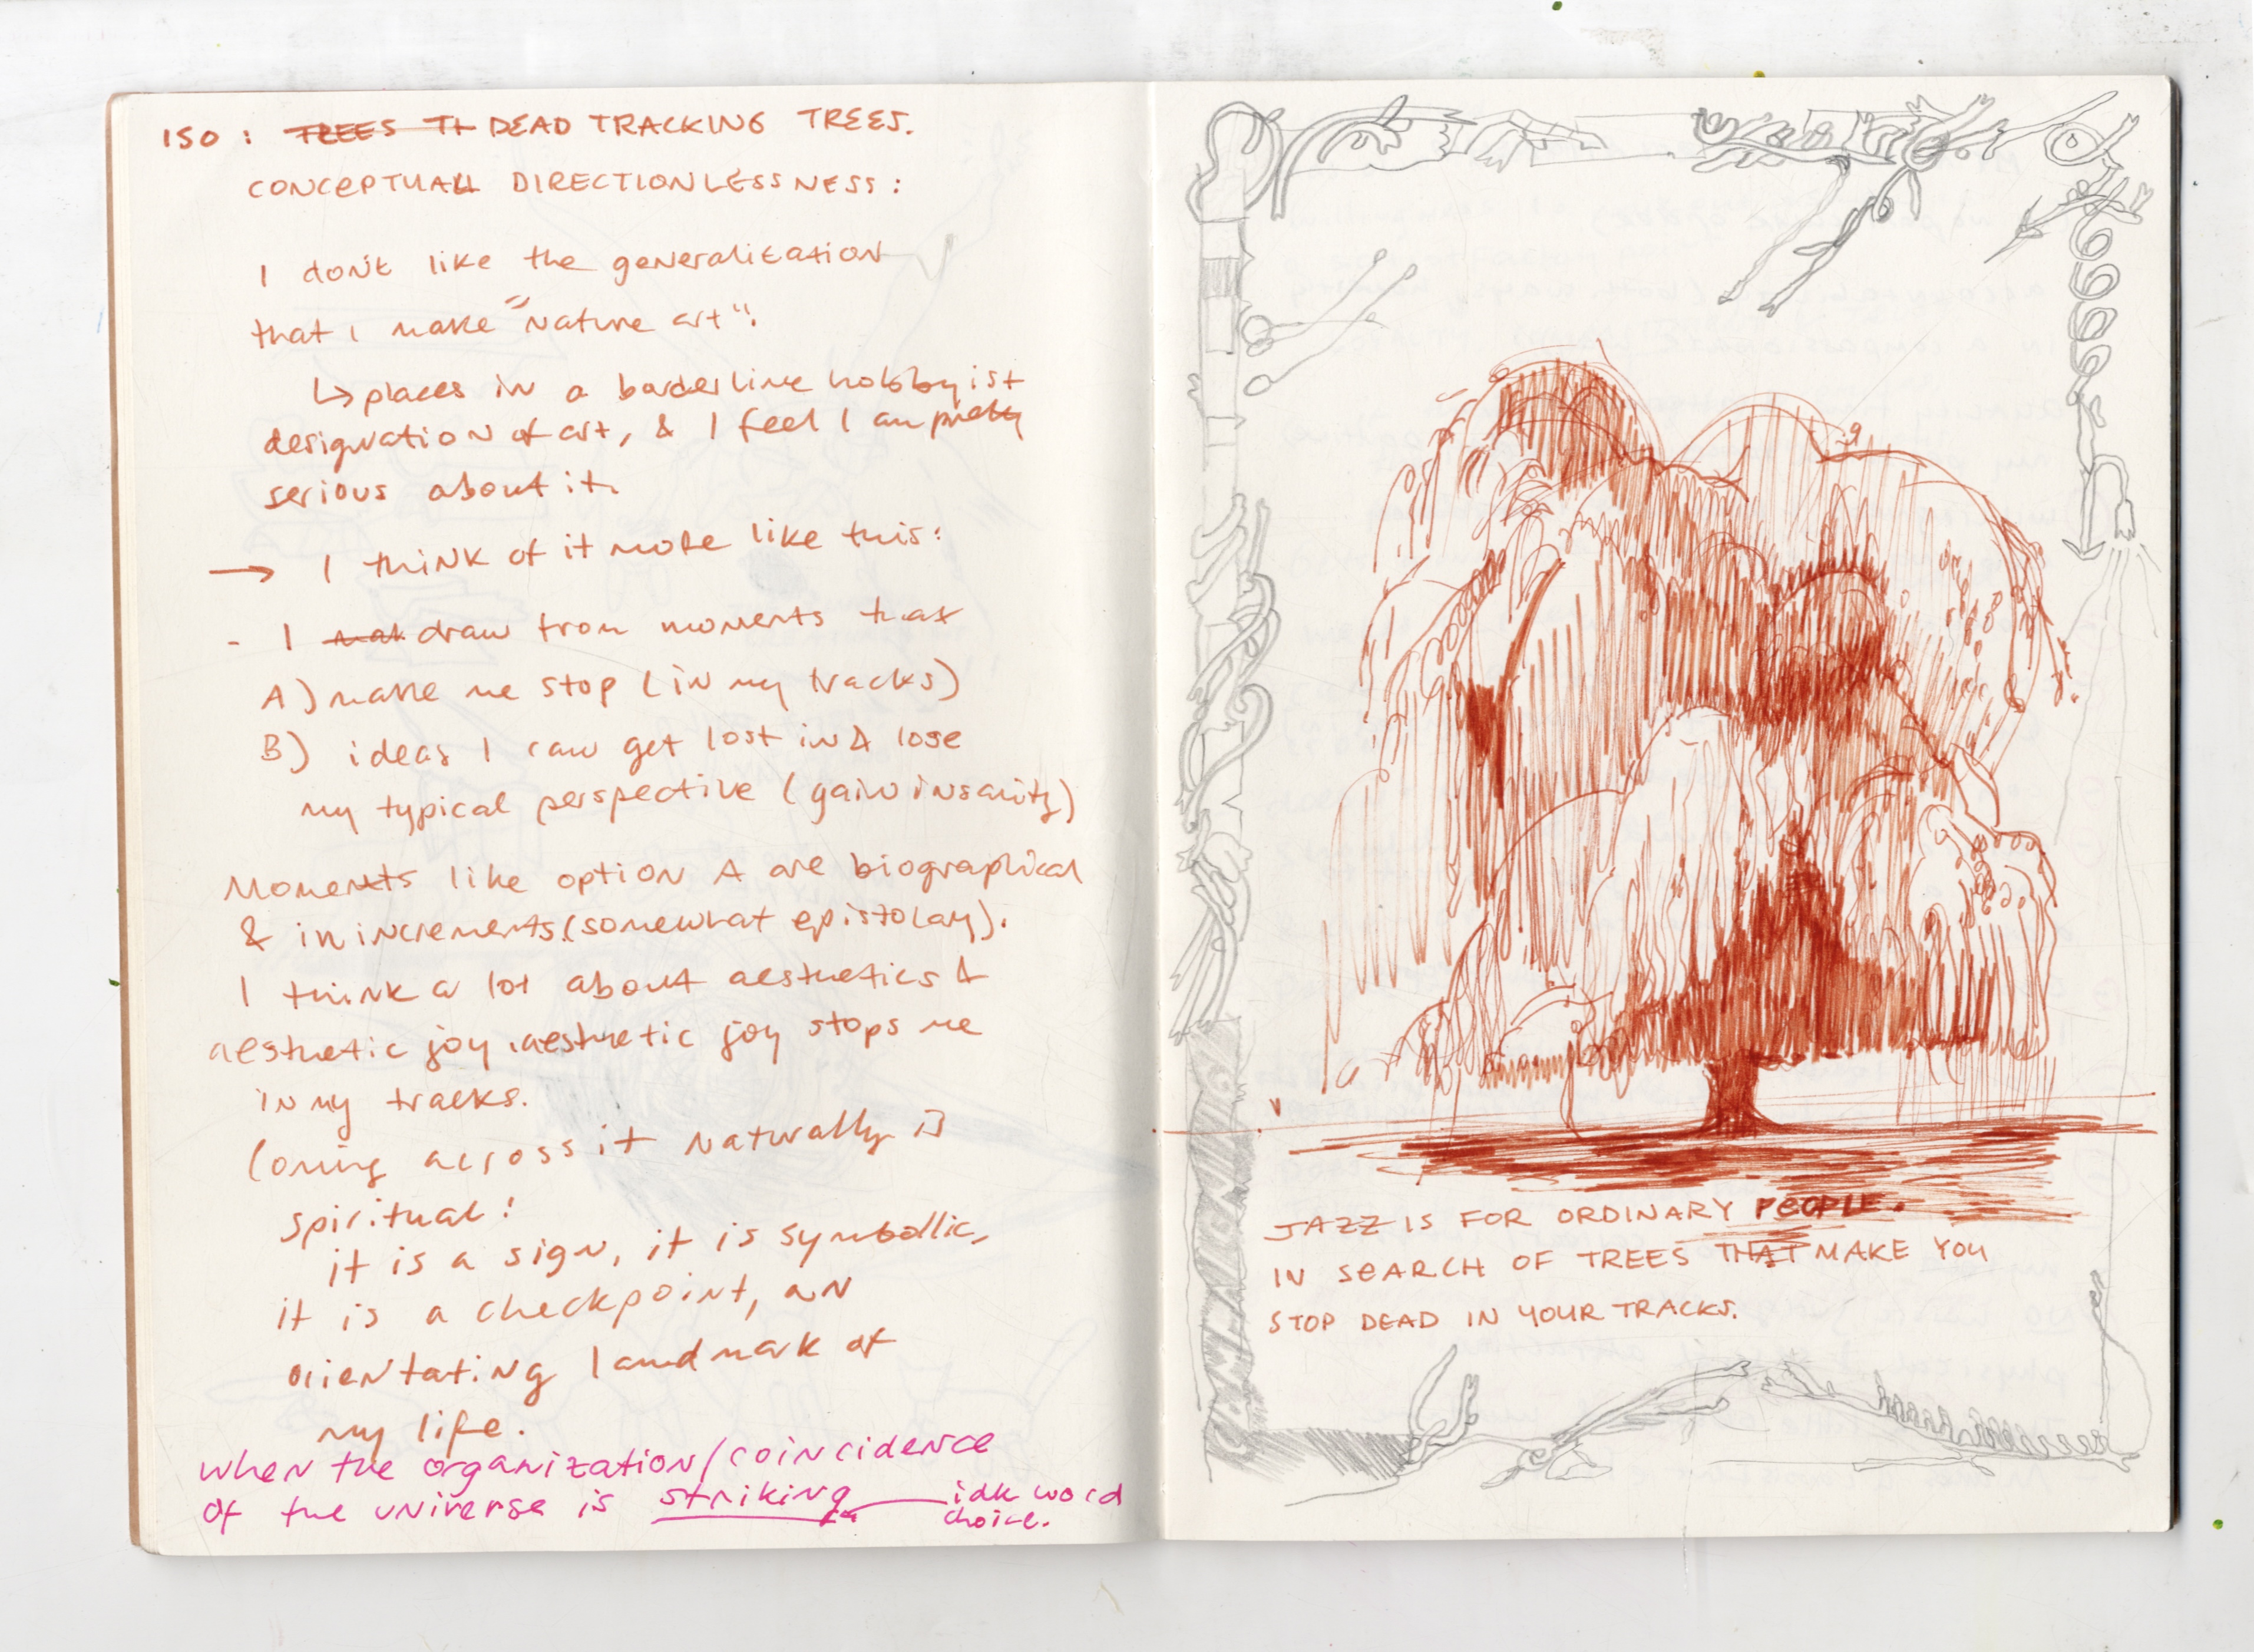 ISO: TREES TH DEAD TRACKING TREES.
CONCEPTUALL DIRECTIONLESSNESS:
I don't like the generalization
that I make "Nature art".
↳ places in a borderline hobbyist
designation of art, & I feel I am pretty
serious about it.
→ I think of it more like this:
- I mak draw from moments that
A) make me stop (in my tracks)
B) ideas I can get lost in & lose
my typical perspective (gain insanity)
Moments like option A are biographical
& in increments (somewhat epistolary).
I think a lot about aesthetics &
aesthetic joy. aesthetic joy stops me
in my tracks.
Coming across it naturally is
spiritual!
it is a sign, it is symbollic,
it is a checkpoint, an
orientating landmark of
my life.
when the organization/coincidence
of the universe is striking ← idk word
choice.
JAZZ IS FOR ORDINARY PEOPLE.
IN SEARCH OF TREES THAT MAKE YOU
STOP DEAD IN YOUR TRACKS.